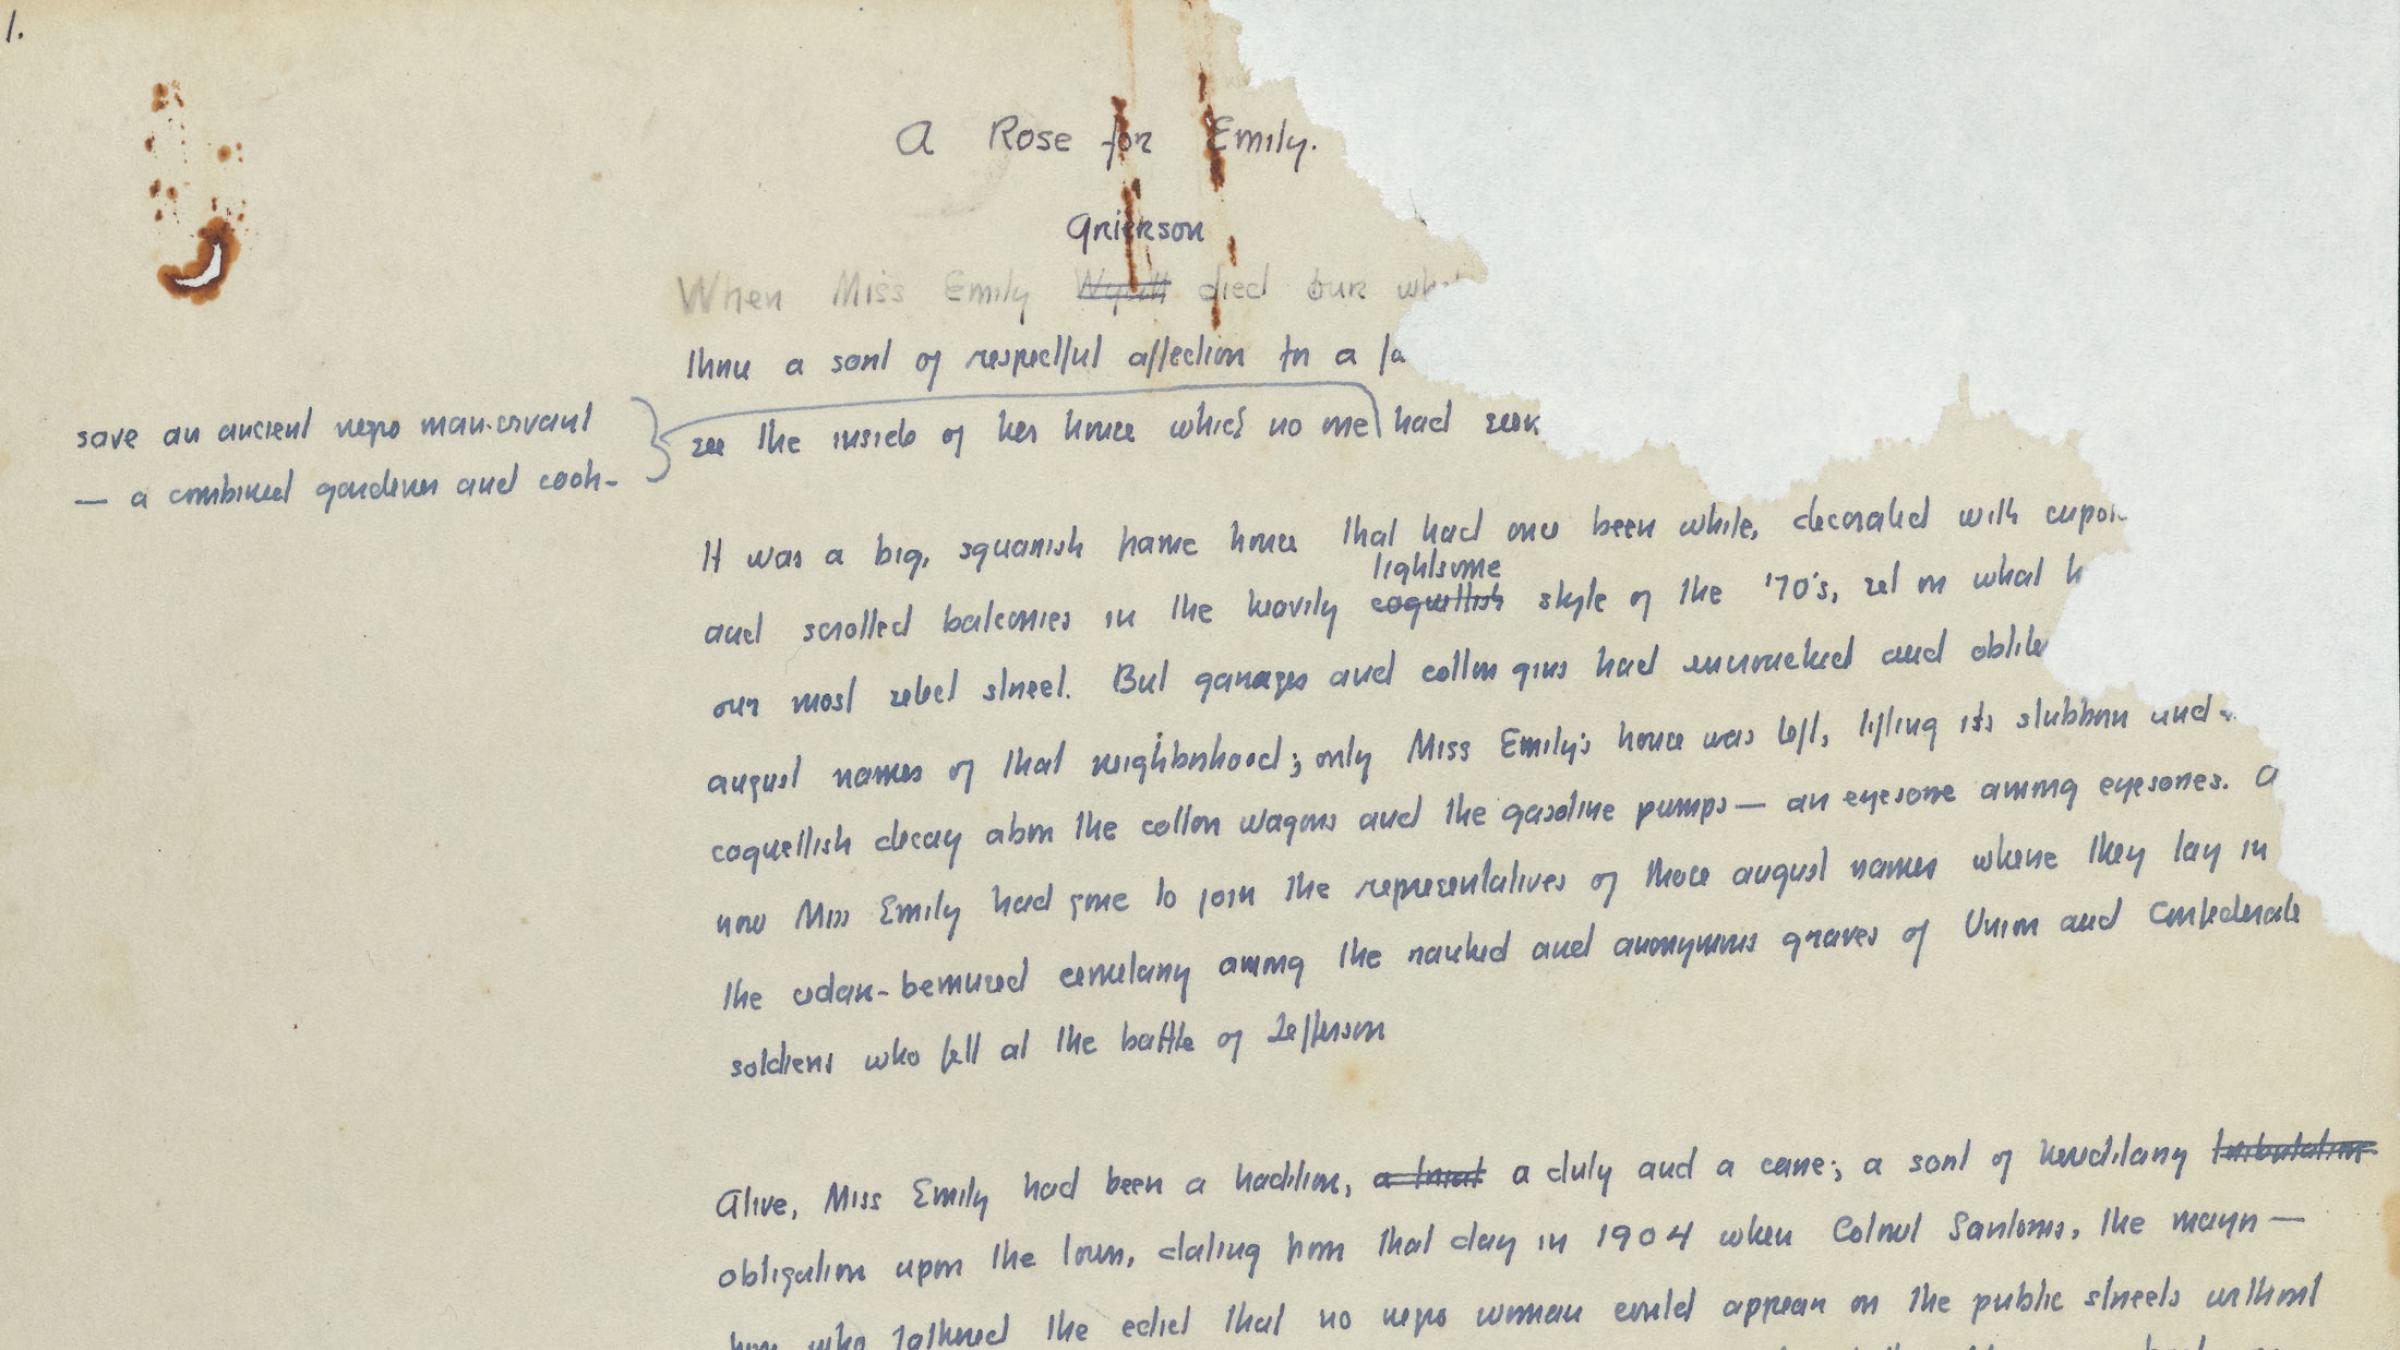 1.
A Rose for Emily.
Grierson
When Miss Emily Wyatt died our wh
thru a sort of respectful affection for a fa
save an ancient negro man-servant
— a combined gardener and cook-
see the inside of her house which no one had seen
It was a big, squarish frame house that had once been white, decorated with cupol
lightsome
and scrolled balconies in the heavily coquettish style of the '70's, set on what h
our most select street. But garages and cotton gins had encroached and oblite
august names of that neighborhood; only Miss Emily's house was left, lifting its stubborn and
coquettish decay above the cotton wagons and the gasoline pumps— an eyesore among eyesores. A
now Miss Emily had gone to join the representatives of those august names where they lay in
the cedar-bemused cemetary among the ranked and anonymous graves of Union and Confederate
soldiers who fell at the battle of Jefferson
Alive, Miss Emily had been a tradition, a duty and a care; a sort of hereditary
obligation upon the town, dating from that day in 1904 when Colonel Sartoris, the mayor—
who fathered the edict that no negro woman could appear on the public streets without